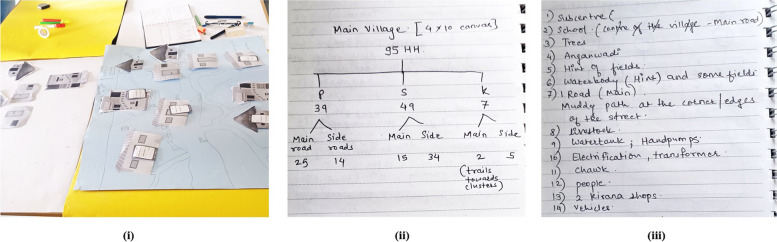 Main Village [4 x 10 canvas]
95 HH
P S K
39 49 7
Main road Side roads Main Side Main Side
25 14 15 34 2 5
(trails towards clusters)
1) Subcentre (
2) School. (centre of the village - Main road)
3) Trees
4) Anganwadi
5) Hint of fields.
6) Waterbody (Hint) and some fields
7) 1 Road (Main)
Muddy path at the corner/edges
of the street.
8) Livestock.
9) Watertank, Handpumps.
10) Electrification, transformer.
11) chawk
12) people.
13) 2 kirana shops.
14) Vehicles.
(i) (ii) (iii)